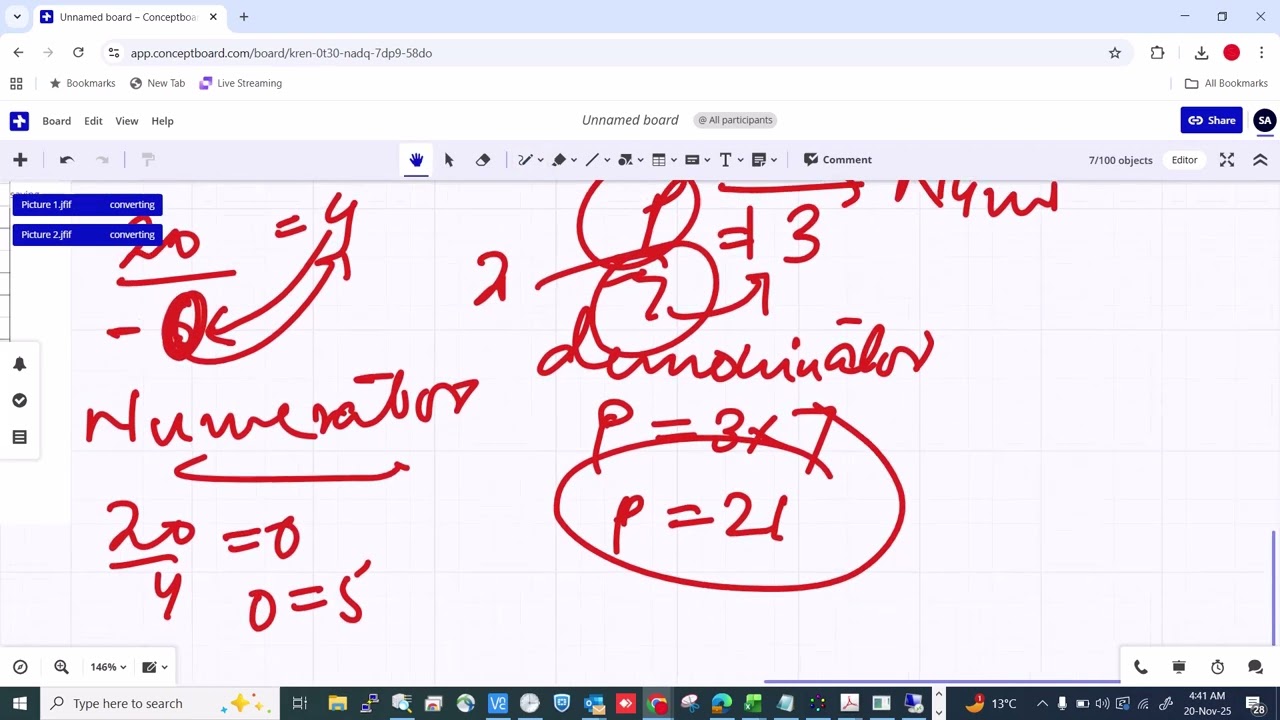 Unnamed board – Conceptboa
app.conceptboard.com/board/kren-0t30-nadq-7dp9-58do
Bookmarks
New Tab
Live Streaming
All Bookmarks
Board
Edit
View
Help
Unnamed board
@ All participants
Share
SA
T
Comment
7/100 objects
Editor
Picture 1.jfif converting
Picture 2.jfif converting
20 = 4
Numerator
20 = 0
4
0 = 5
P = 3
7
denominator
P = 3 x 7
P = 21
146%
Type here to search
13°C
4:41 AM
20-Nov-25
28